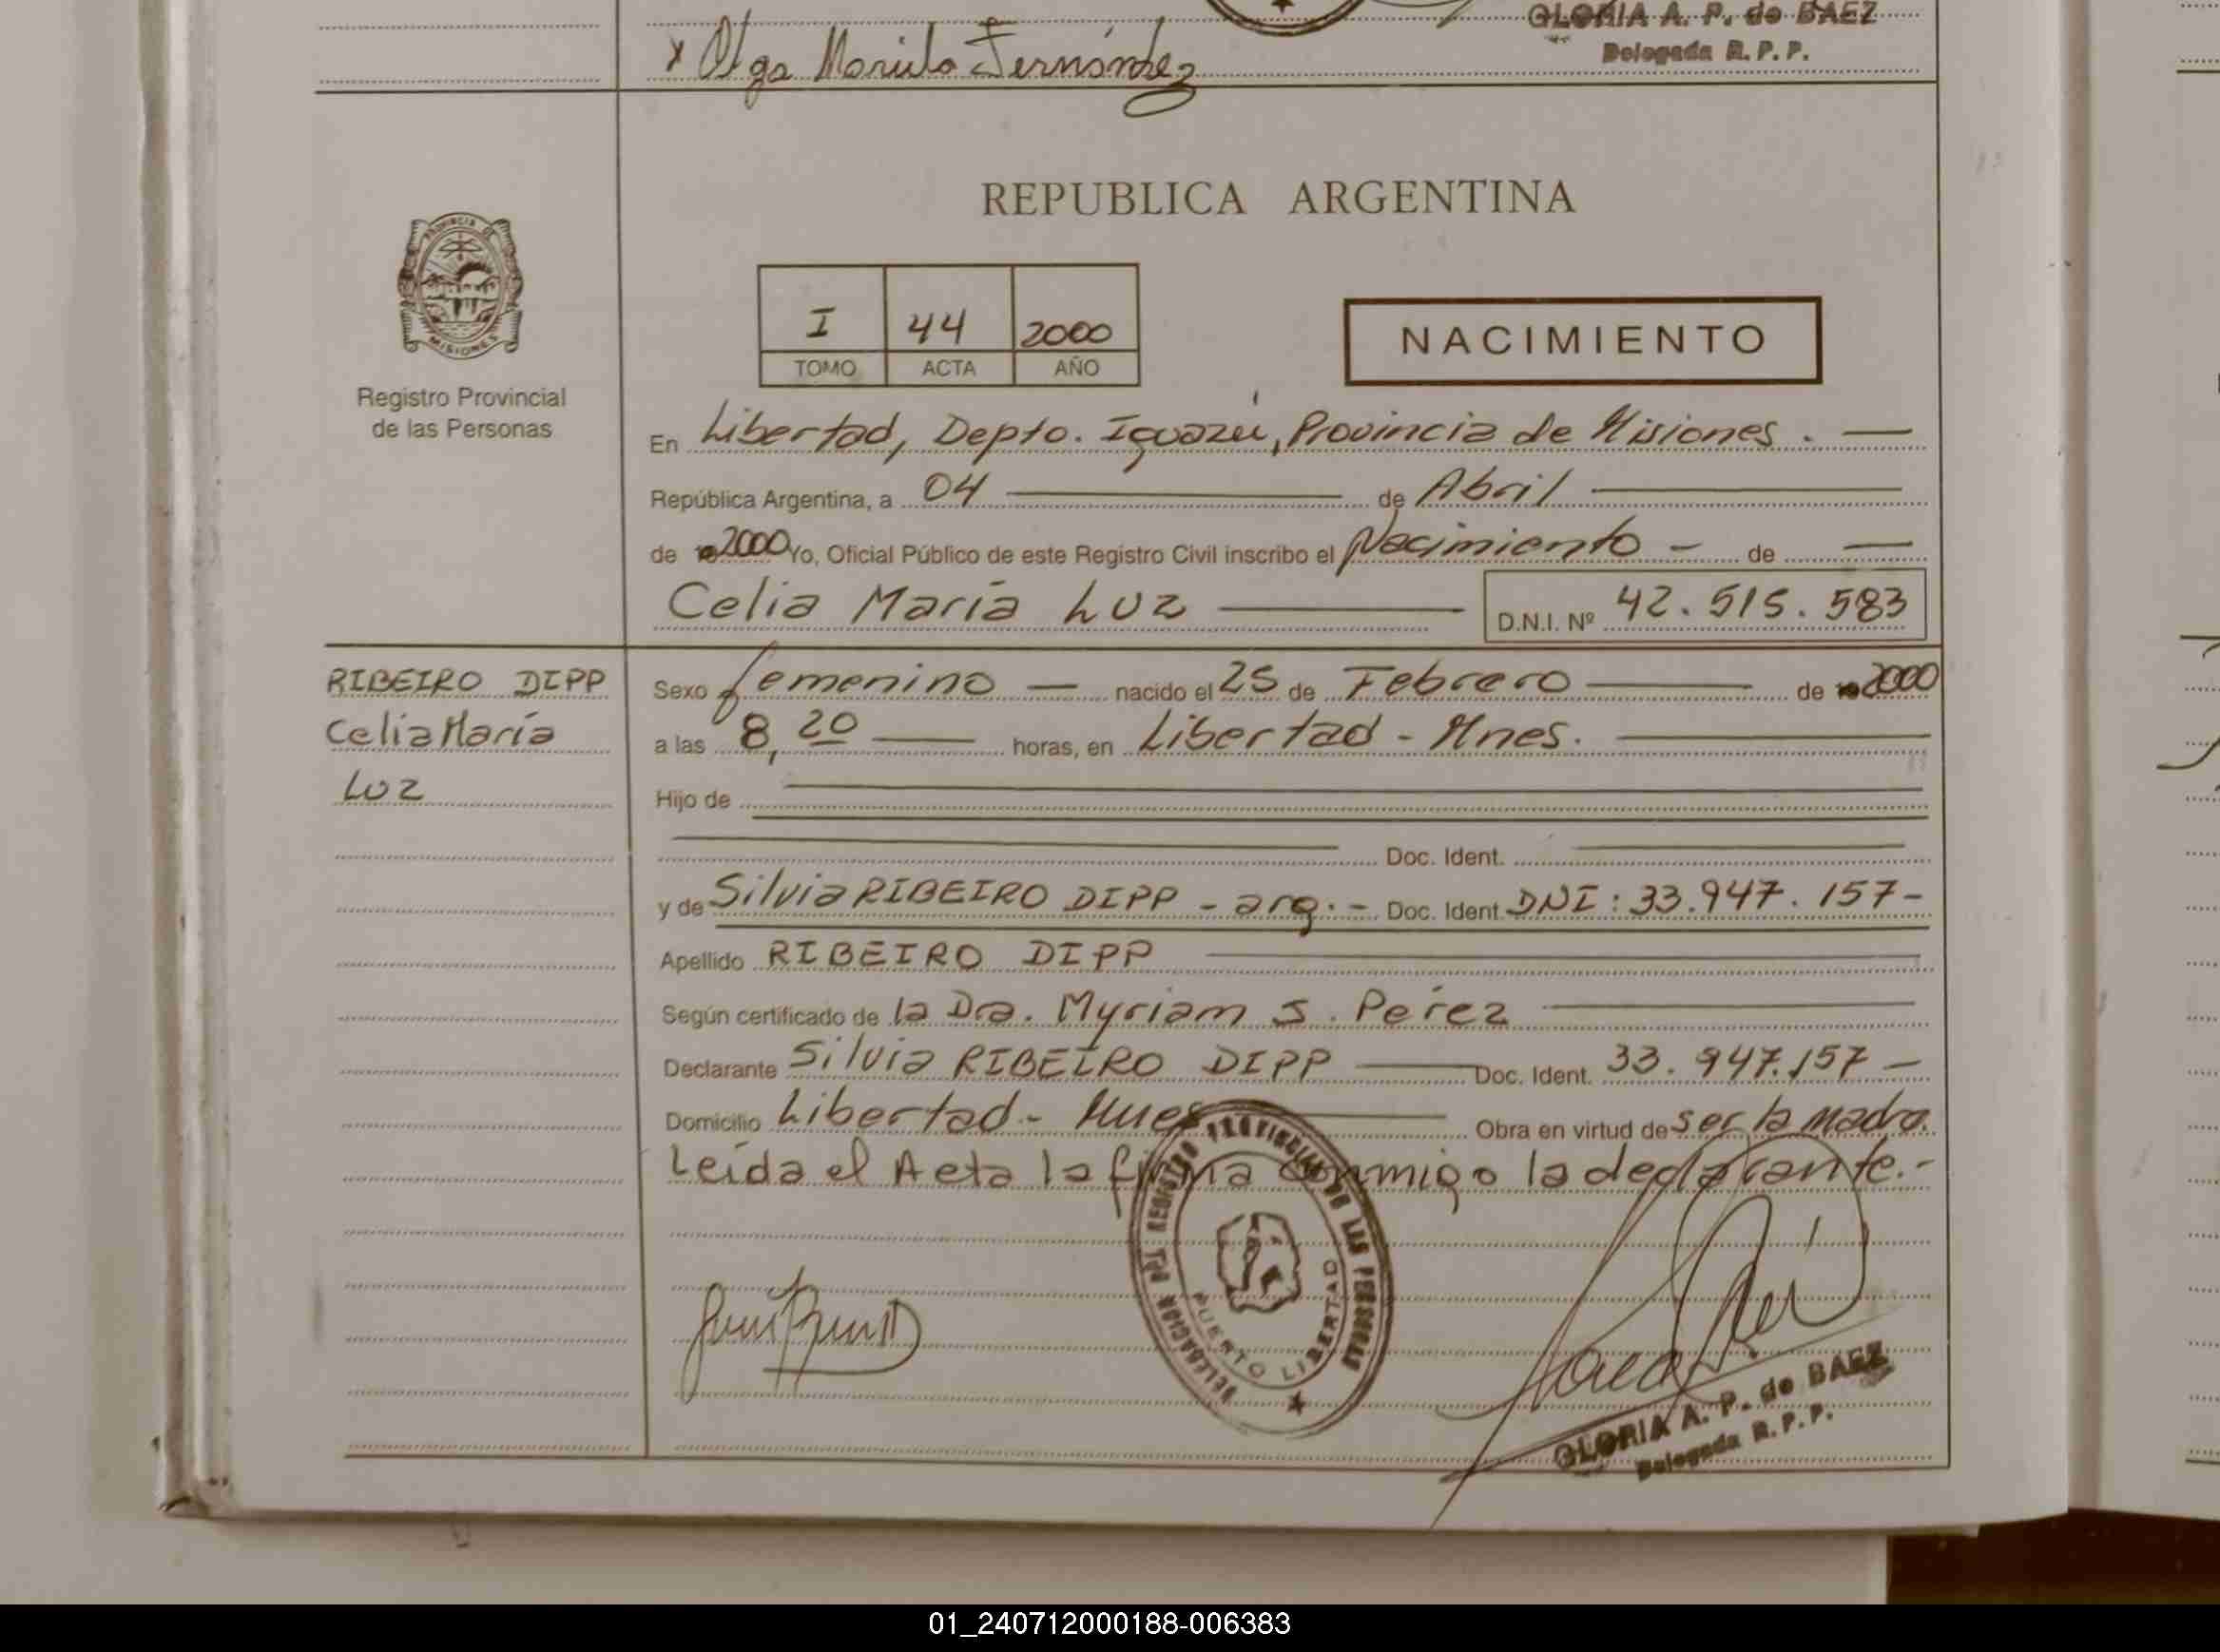 GLORIA A. P. de BAEZ
Delegada R. P. P.
x Olga Mariela Fernández
PROVINCIA DE
MISIONES
Registro Provincial
de las Personas
REPUBLICA ARGENTINA
I 44 2000
TOMO ACTA AÑO
NACIMIENTO
En Libertad, Depto. Iguazú, Provincia de Misiones. —
República Argentina, a 04 — de Abril —
de 2000 Yo, Oficial Público de este Registro Civil inscribo el Nacimiento - de —
Celia María Luz — D.N.I. Nº 42.515.583
RIBEIRO DIPP
Celia María
Luz
Sexo femenino — nacido el 25 de Febrero — de 2000
a las 8,20 — horas, en Libertad - Mnes. —
Hijo de —
— Doc. Ident. —
y de Silvia RIBEIRO DIPP - arg. - Doc. Ident. DNI: 33.947.157-
Apellido RIBEIRO DIPP —
Según certificado de la Dra. Myriam S. Pérez —
Declarante Silvia RIBEIRO DIPP — Doc. Ident. 33.947.157 —
Domicilio Libertad - Mnes — Obra en virtud de ser la madre.
Leída el Acta la firma conmigo la declarante.-
DELEGACION DEL REGISTRO PROVINCIAL DE LAS PERSONAS
PUERTO LIBERTAD
GLORIA A. P. de BAEZ
Delegada R. P. P.
01_240712000188-006383